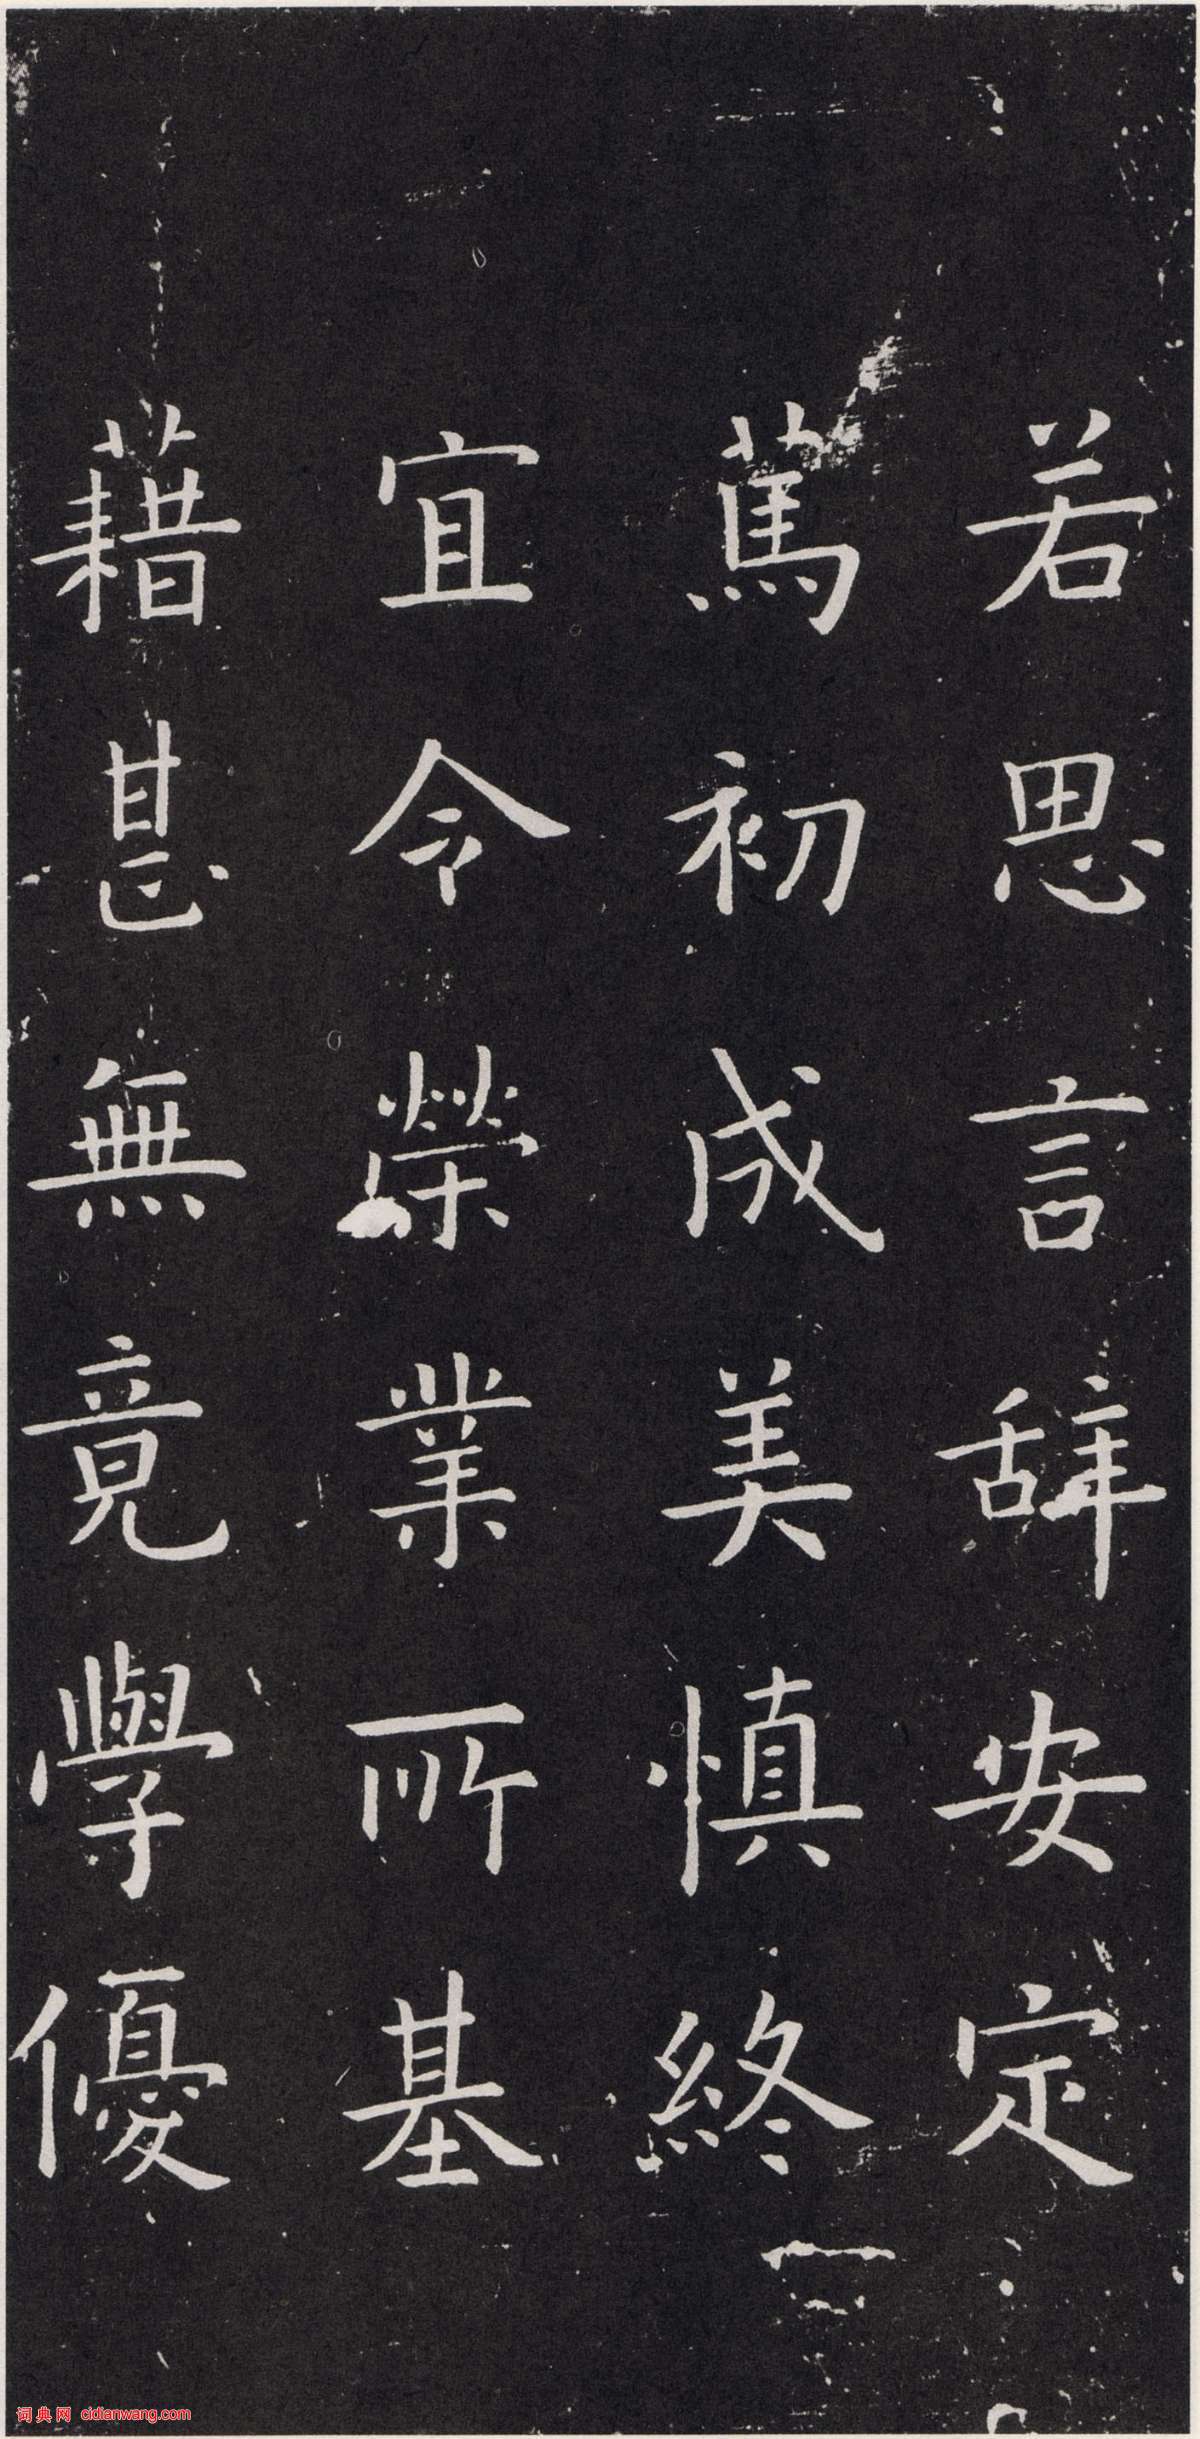 若思言辞安定
篤初成美慎終
宜令榮業所基
藉甚無竟學優
词典网 cidianwang.com